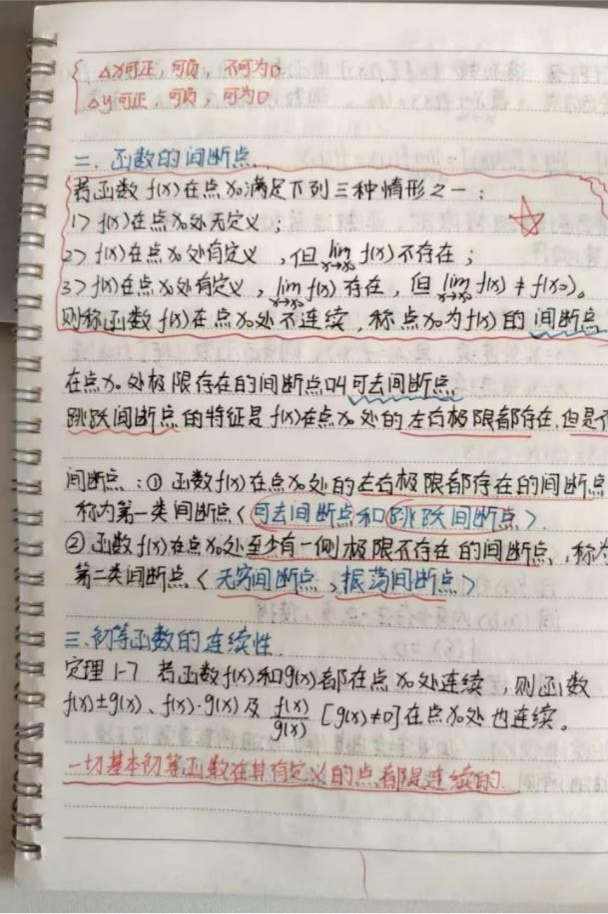 △x可正，可负，不可为0
△y可正，可负，可为0
二、函数的间断点
若函数 f(x)在点x₀满足下列三种情形之一：
1> f(x)在点x₀处无定义；
2> f(x)在点x₀处有定义，但lim x→x₀ f(x)不存在；
3> f(x)在点x₀处有定义，lim x→x₀ f(x)存在，但 lim x→x₀ f(x)≠f(x₀)。
则称函数f(x)在点x₀处不连续，称点x₀为f(x)的间断点
在点x₀处极限存在的间断点叫可去间断点
跳跃间断点的特征是f(x)在点x₀处的左右极限都存在，但是不
间断点：① 函数f(x)在点x₀处的左右极限都存在的间断点
称为第一类间断点<可去间断点和跳跃间断点>.
②函数f(x)在点x₀处至少有一侧极限不存在的间断点，称为
第二类间断点<无穷间断点，振荡间断点>
三、初等函数的连续性.
定理1-7 若函数f(x)和g(x)都在点x₀处连续，则函数
f(x)±g(x)、f(x)·g(x)及 f(x)/g(x) [g(x)≠0]在点x₀处也连续。
一切基本初等函数在其有定义的点都是连续的.